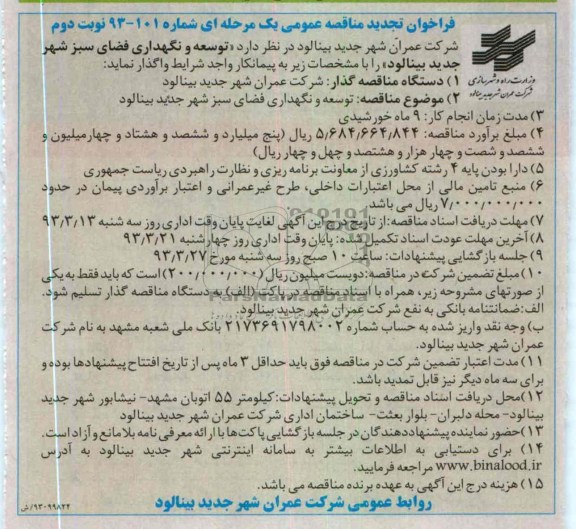 فراخوان تجدید مناقصه عمومی یک مرحله ای شماره ۱۰۱-۹۳ نوبت دوم
شرکت عمران شهر جدید بینالود در نظر دارد «توسعه و نگهداری فضای سبز شهر
جدید بینالود» را با مشخصات زیر به پیمانکار واجد شرایط واگذار نماید:
وزارت راه و شهرسازی
شرکت عمران شهر جدید بینالود
۱) دستگاه مناقصه گذار: شرکت عمران شهر جدید بینالود
۲) موضوع مناقصه: توسعه و نگهداری فضای سبز شهر جدید بینالود
۳) مدت زمان انجام کار: ۹ ماه خورشیدی
۴) مبلغ برآورد مناقصه: ۵/۶۸۴/۶۶۴/۸۴۴ ریال (پنج میلیارد و ششصد و هشتاد و چهارمیلیون و
ششصد و شصت و چهار هزار و هشتصد و چهل و چهار ریال)
۵) دارا بودن پایه ۴ رشته کشاورزی از معاونت برنامه ریزی و نظارت راهبردی ریاست جمهوری
۶) منبع تامین مالی از محل اعتبارات داخلی، طرح غیرعمرانی و اعتبار برآوردی پیمان در حدود
۷/۰۰۰/۰۰۰/۰۰۰ ریال می باشد.
۷) مهلت دریافت اسناد مناقصه: از تاریخ درج این آگهی لغایت پایان وقت اداری روز سه شنبه ۹۳/۳/۱۳
۸) آخرین مهلت عودت اسناد تکمیل شده: پایان وقت اداری روز چهارشنبه ۹۳/۳/۲۱
۹) جلسه بازگشایی پیشنهادات: ساعت ۱۰ صبح روز سه شنبه مورخ ۹۳/۳/۲۷
۱۰) مبلغ تضمین شرکت در مناقصه: دویست میلیون ریال (۲۰۰/۰۰۰/۰۰۰) است که باید فقط به یکی
از صورتهای مشروحه زیر، همراه با اسناد مناقصه در پاکت (الف) به دستگاه مناقصه گذار تسلیم شود.
الف: ضمانتنامه بانکی به نفع شرکت عمران شهر جدید بینالود.
ب) وجه نقد واریز شده به حساب شماره ۲۱۷۳۶۹۱۷۹۸۰۰۲ بانک ملی شعبه مشهد به نام شرکت
عمران شهر جدید بینالود.
۱۱) مدت اعتبار تضمین شرکت در مناقصه فوق باید حداقل ۳ ماه پس از تاریخ افتتاح پیشنهادها بوده و
برای سه ماه دیگر نیز قابل تمدید باشد.
۱۲) محل دریافت اسناد مناقصه و تحویل پیشنهادات: کیلومتر ۵۵ اتوبان مشهد- نیشابور شهر جدید
بینالود- محله دلبران- بلوار بعثت- ساختمان اداری شرکت عمران شهر جدید بینالود
۱۳) حضور نماینده پیشنهاددهندگان در جلسه بازگشایی پاکت ها با ارائه معرفی نامه بلامانع و آزاد است.
۱۴) برای دستیابی به اطلاعات بیشتر به سامانه اینترنتی شهر جدید بینالود به آدرس
www.binalood.ir مراجعه فرمایید.
۱۵) هزینه درج این آگهی به عهده برنده مناقصه می باشد.
روابط عمومی شرکت عمران شهر جدید بینالود
۹۳۰۹۹۸۲۴/ش